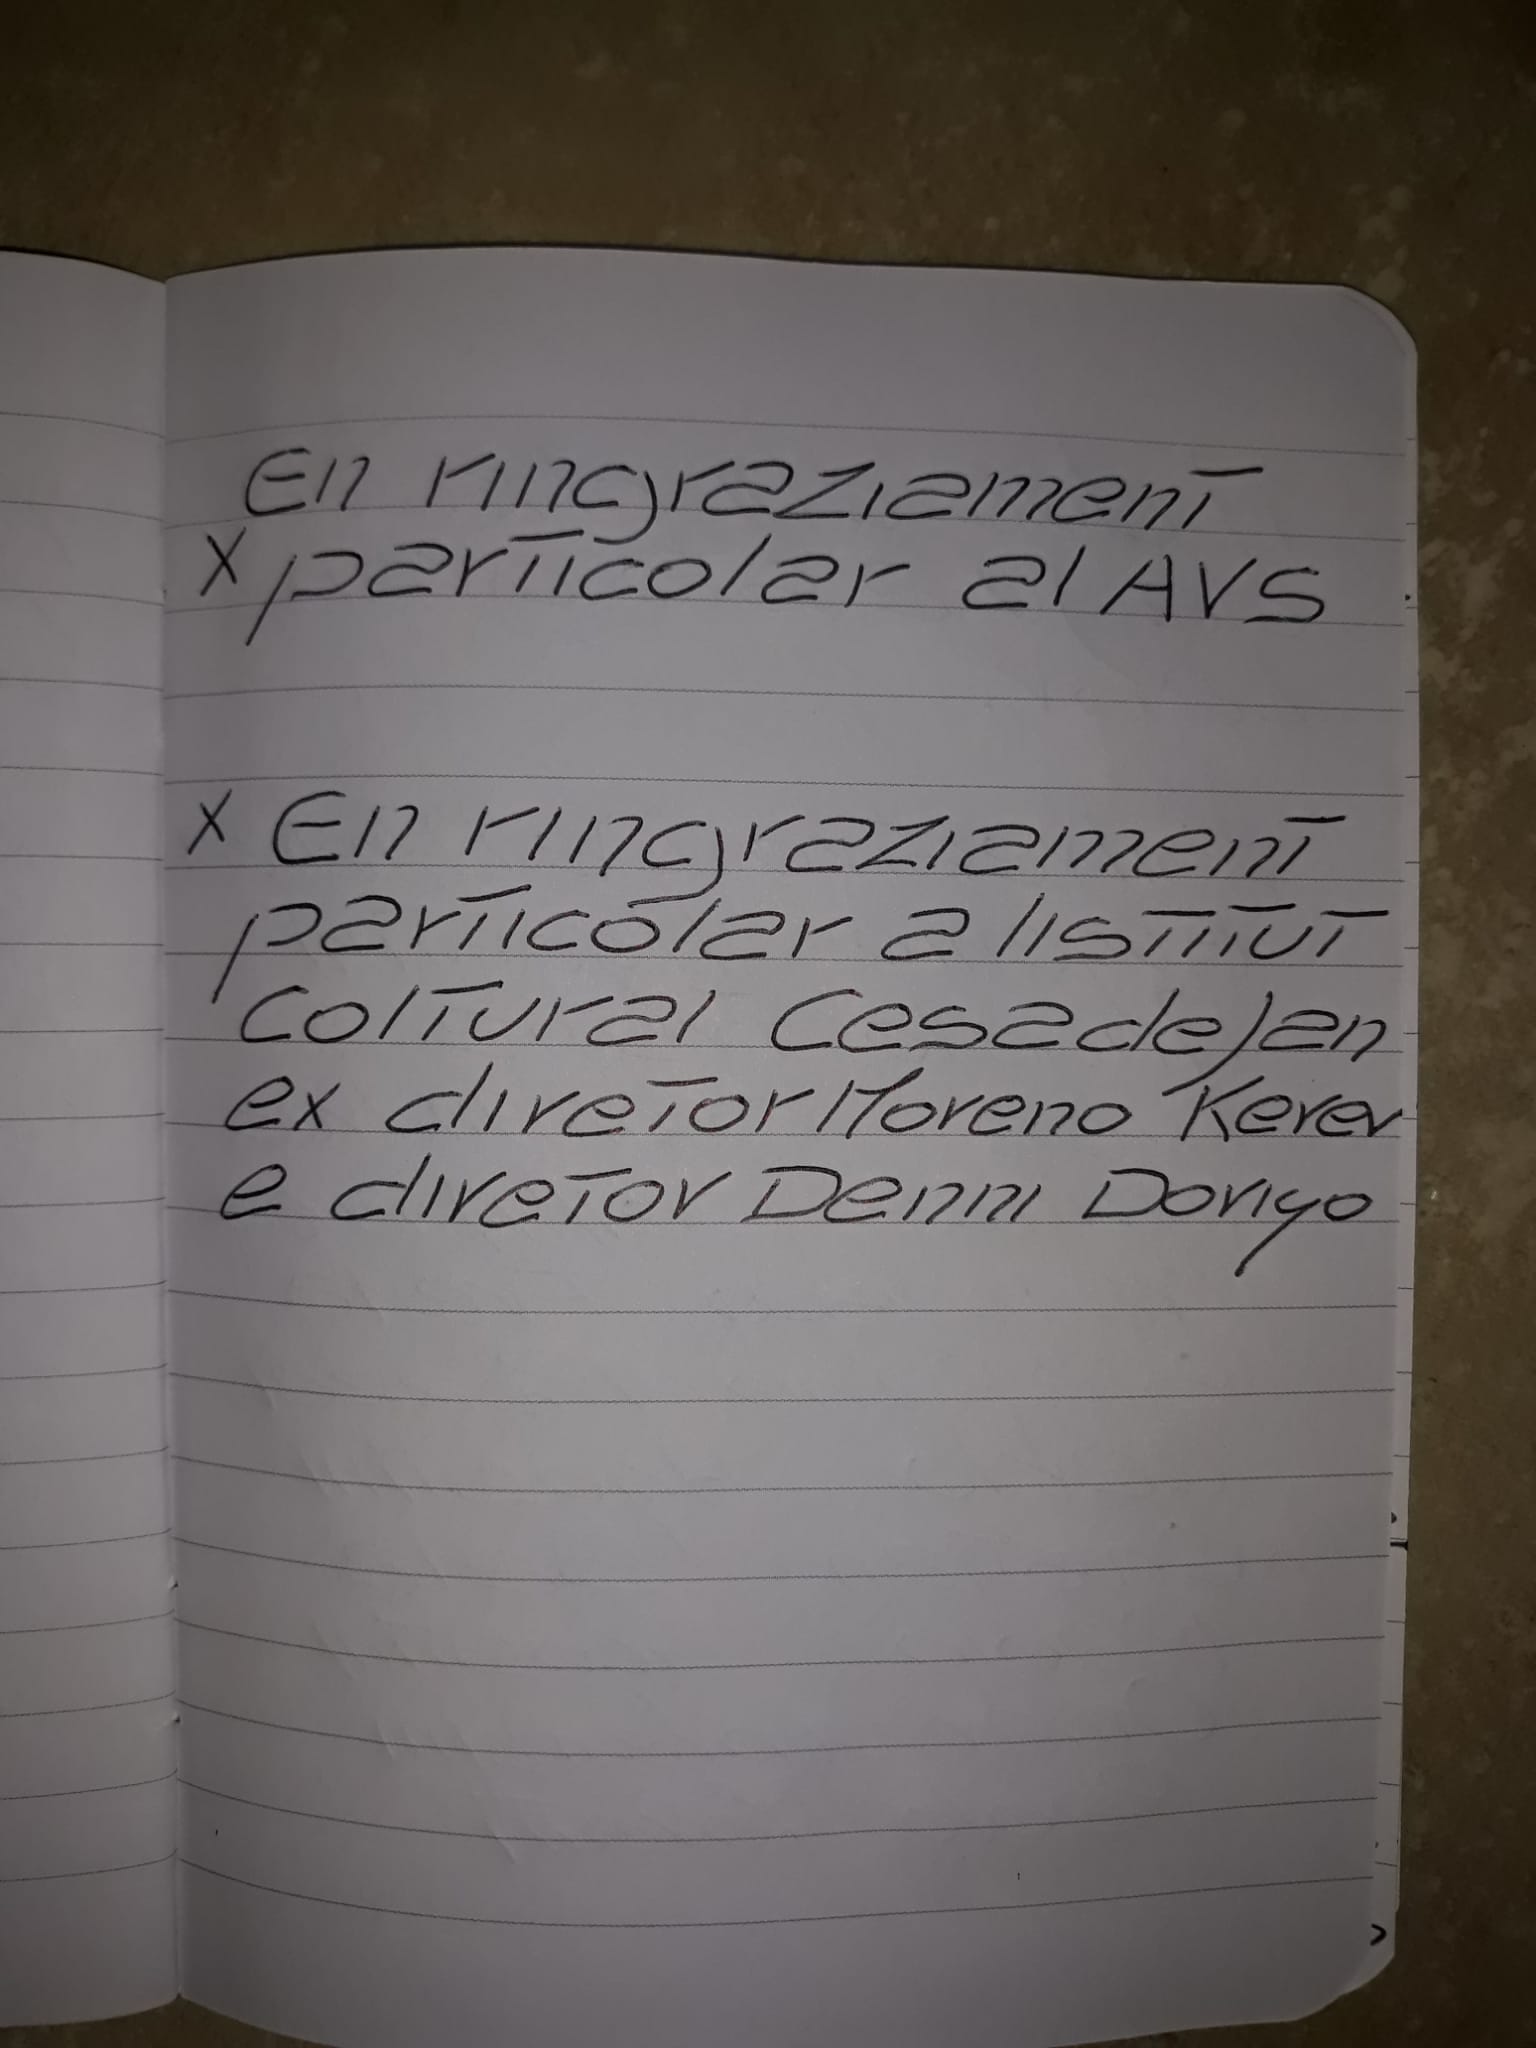 En ringraziament
x particolar al AVS
x En ringraziament
particolar a listitut
coltural Cesa de Jan
ex diretor Moreno Kerer
e diretor Denni Dorigo